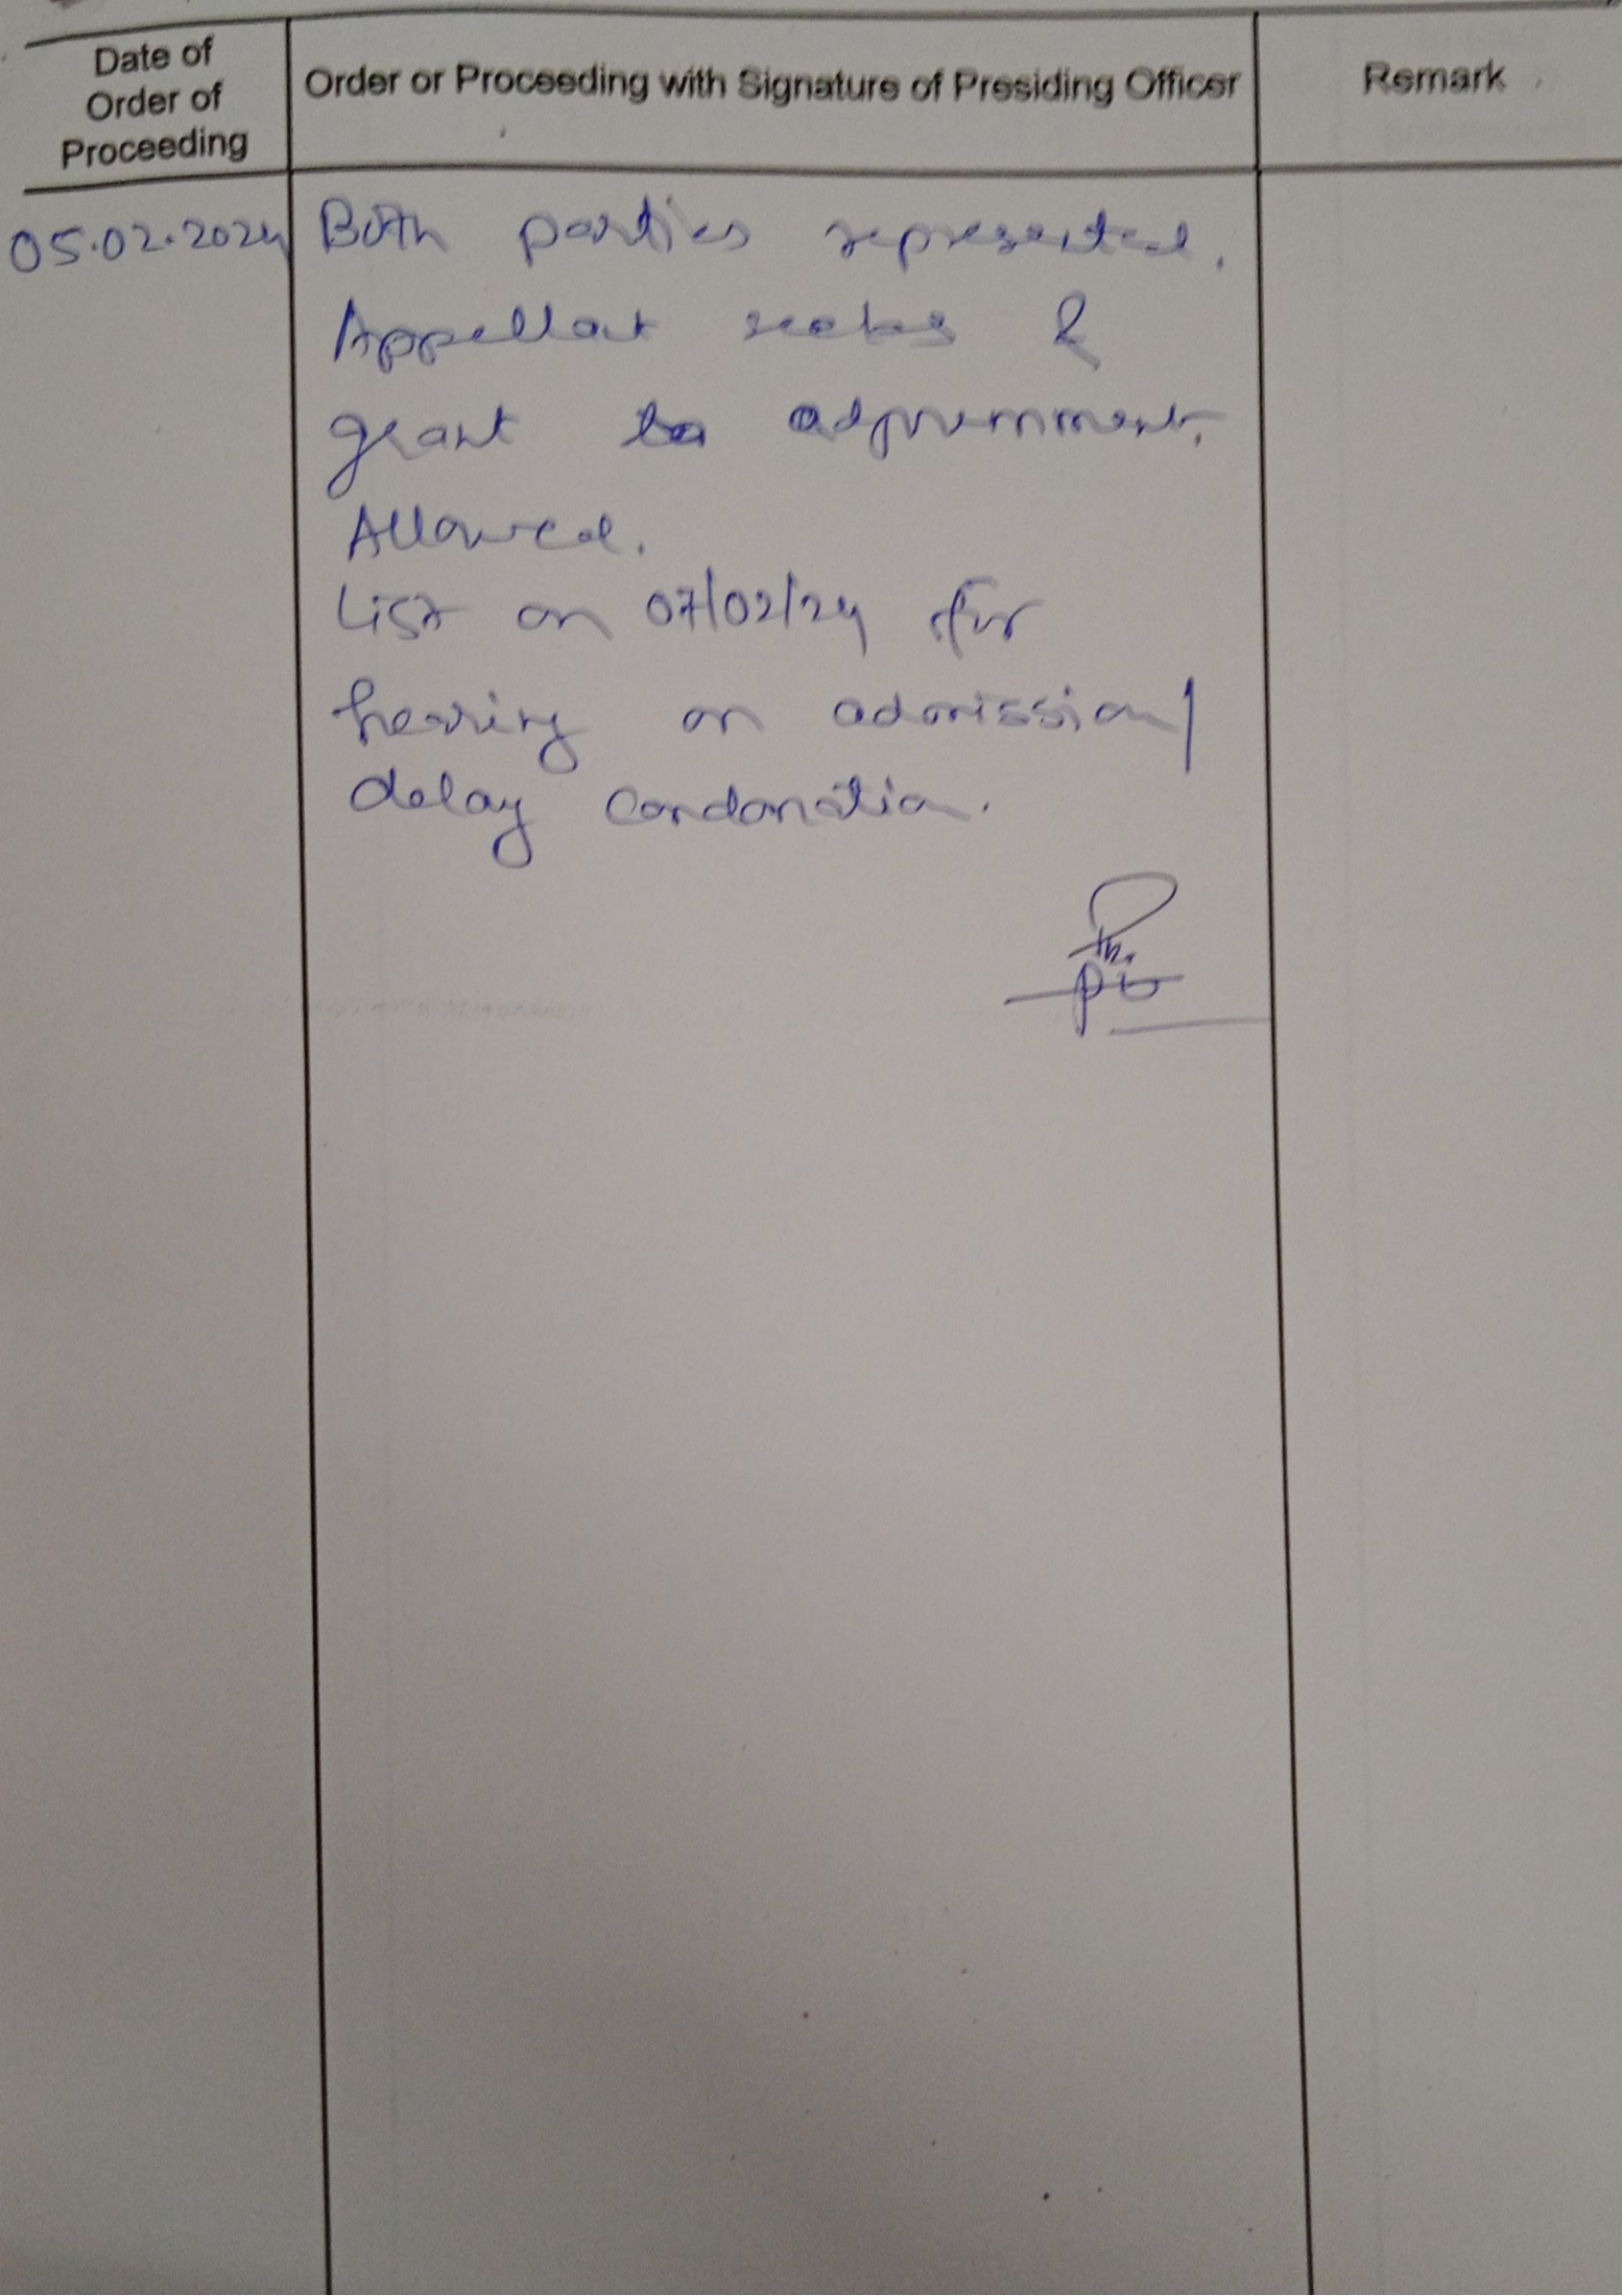 Date of
Order of
Proceeding
Order or Proceeding with Signature of Presiding Officer
Remark
05.02.2024
Both parties represented.
Appellant seeks &
grant to adjournment.
Allowed.
List on 07/02/24 for
hearing on admission/
delay condonation.